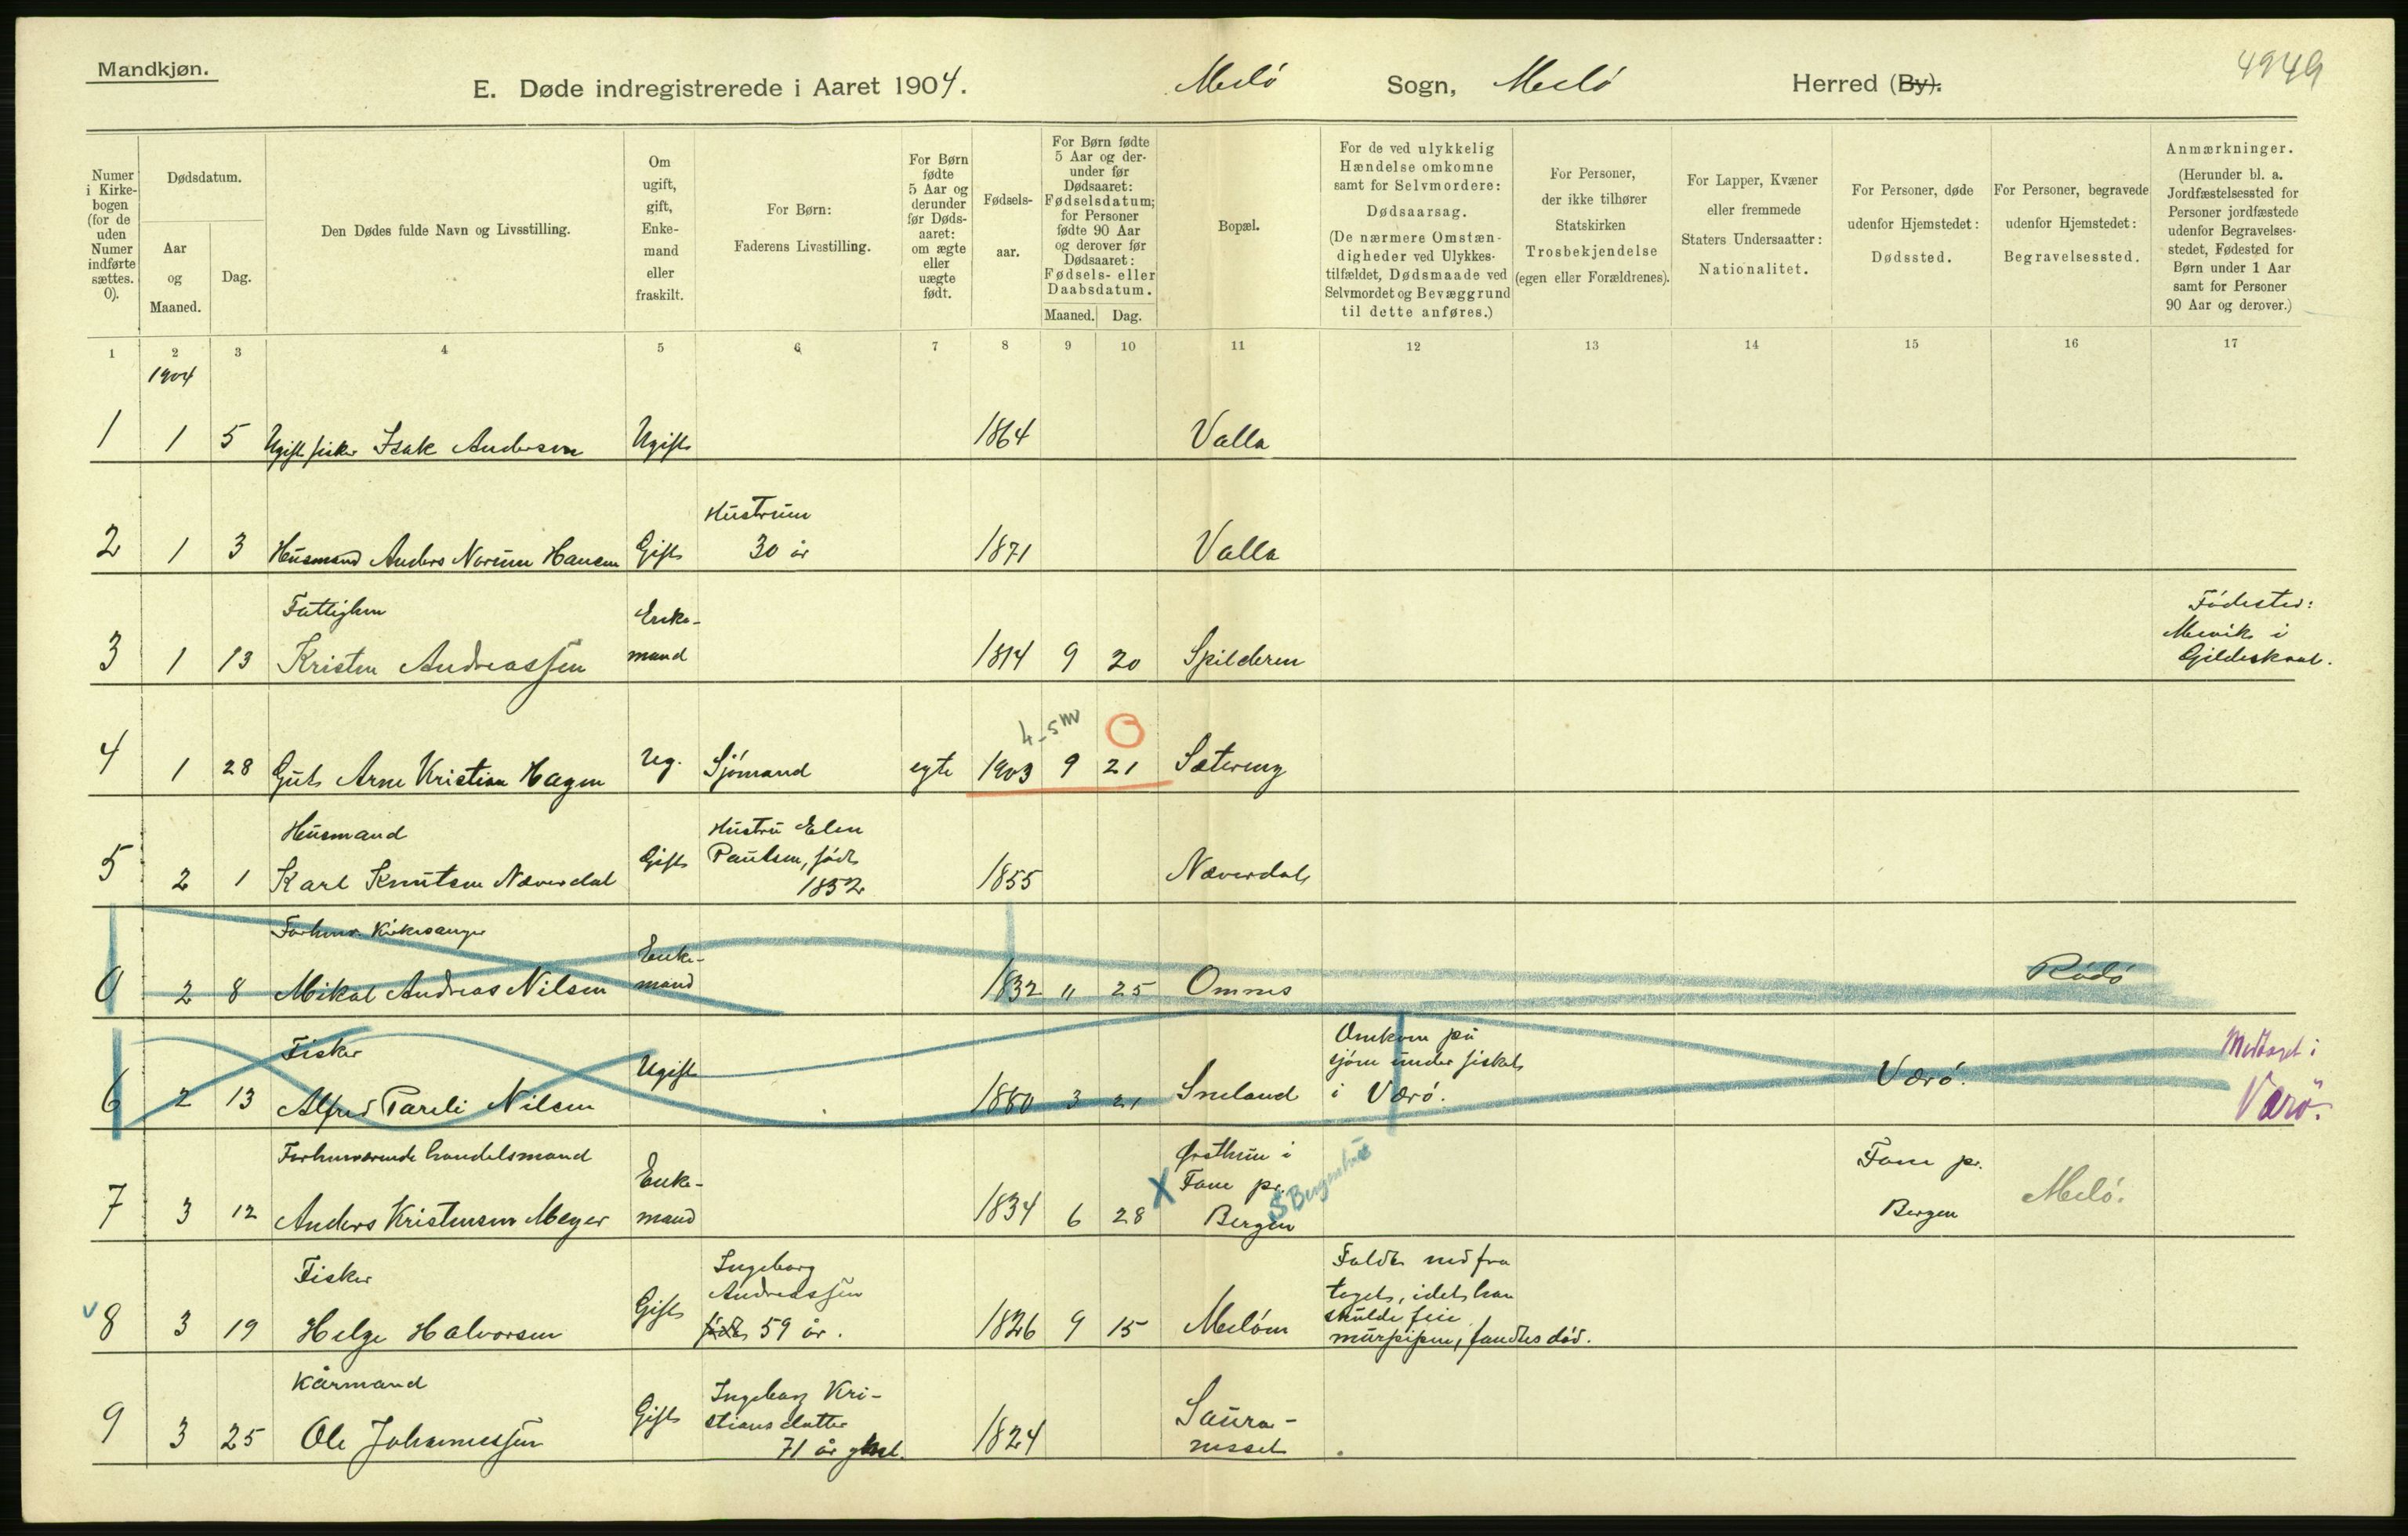 Mandkjøn.
E. Døde indregistrerede i Aaret 1904. Melö Sogn, Melö Herred (By).
4949
Numer i Kirkebogen (for de uden Numer indførte sættes. 0).
Dødsdatum.
Aar og Maaned.
Dag.
Den Dødes fulde Navn og Livsstilling.
Om ugift, gift, Enkemand eller fraskilt.
For Børn: Faderens Livsstilling.
For Børn fødte 5 Aar og derunder før Dødsaaret: om ægte eller uægte født.
Fødselsaar.
For Børn fødte 5 Aar og derunder før Dødsaaret: Fødselsdatum; for Personer fødte 90 Aar og derover før Dødsaaret: Fødsels- eller Daabsdatum.
Maaned. Dag.
Bopæl.
For de ved ulykkelig Hændelse omkomne samt for Selvmordere: Dødsaarsag. (De nærmere Omstændigheder ved Ulykkestilfældet, Dødsmaade ved Selvmordet og Bevæggrund til dette anføres.)
For Personer, der ikke tilhører Statskirken Trosbekjendelse (egen eller Forældrenes).
For Lapper, Kvæner eller fremmede Staters Undersaatter: Nationalitet.
For Personer, døde udenfor Hjemstedet: Dødssted.
For Personer, begravede udenfor Hjemstedet: Begravelsessted.
Anmærkninger. (Herunder bl. a. Jordfæstelsessted for Personer jordfæstede udenfor Begravelsesstedet, Fødested for Børn under 1 Aar samt for Personer 90 Aar og derover.)
1 2 3 4 5 6 7 8 9 10 11 12 13 14 15 16 17
1904
1 1 5 Ugift fisker Isak Andersen Ugift 1864 Valla
Hustruen
2 1 3 Husmand Anders Norum Hansen Gift 30 år 1871 Valla
Fattiglem Enke- Födested:
3 1 13 Kristen Andreassen mand 1814 9 20 Spilderen Mevik i
Gildeskaal.
4-5 m
4 1 28 Gut Arne Kristian Hagen Ug. Sjömand egte 1903 9 21 Sætering
Husmand Hustru Elen
5 2 1 Karl Knutsen Næverdal Gift Paulsen, född 1855 Næverdal
1852
Forhenv. Kirkesanger Enke-
0 2 8 Mikal Andreas Nilsen mand 1832 11 25 Omnes Rödö
Fisker Omkom på
sjöen under fisket
6 2 13 Alfred Pareli Nilsen Ugift 1880 3 21 Sneland i Værö. Værö. Medtaget i
Værö.
Forhenværende handelsmand Enke- i Fane pr.
Fane pr. S Bergenhus
7 3 12 Anders Kristensen Meyer mand 1834 6 28 X Bergen Bergen Melö.
Fisker Ingeborg Faldt ned fra
Andreassen taget, idet han
8 3 19 Helge Halvorsen Gift födt 59 år. 1826 9 15 Melöen skulde feie
murpipen, fandtes död.
Kårmand Ingeborg Kri-
9 3 25 Ole Johannessen Gift stiansdatter 1824 Saura-
71 år gml. nesset